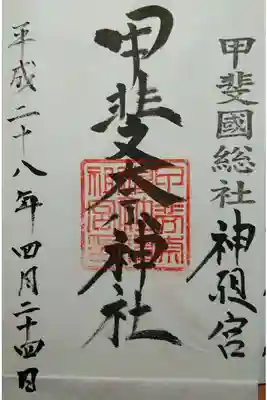 甲斐國総社 神祖宮
甲斐奈神社
平成二十八年四月二十四日